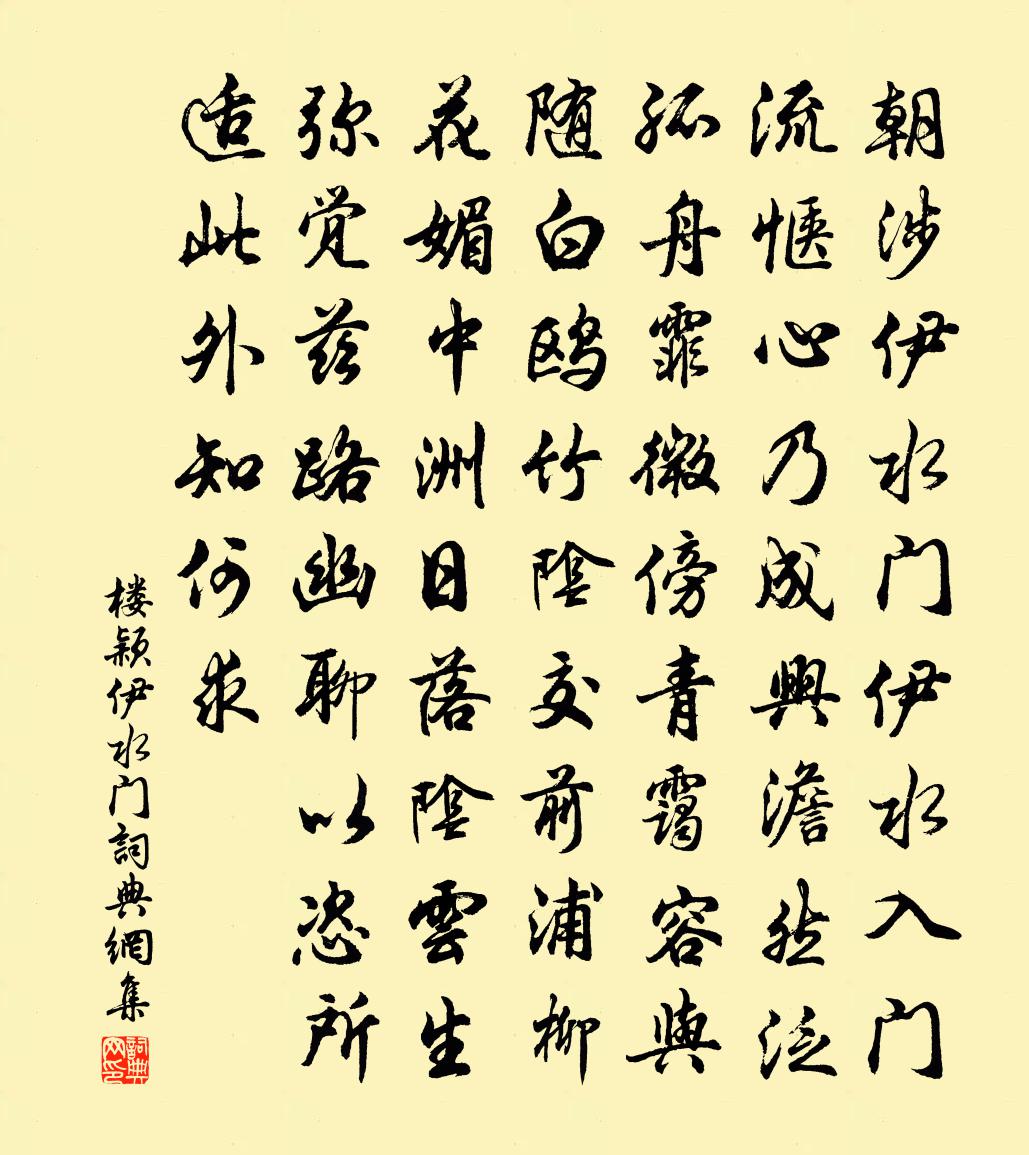 朝涉伊水门伊水入门
流惬心乃成興澹然泛
孤舟霏微傍青靄容與
随白鸥竹陰交前浦柳
花媚中洲日落陰雲生
弥觉兹路幽聊以恣所
适此外知何求
楼颖伊水门詞典網集
詞典网印